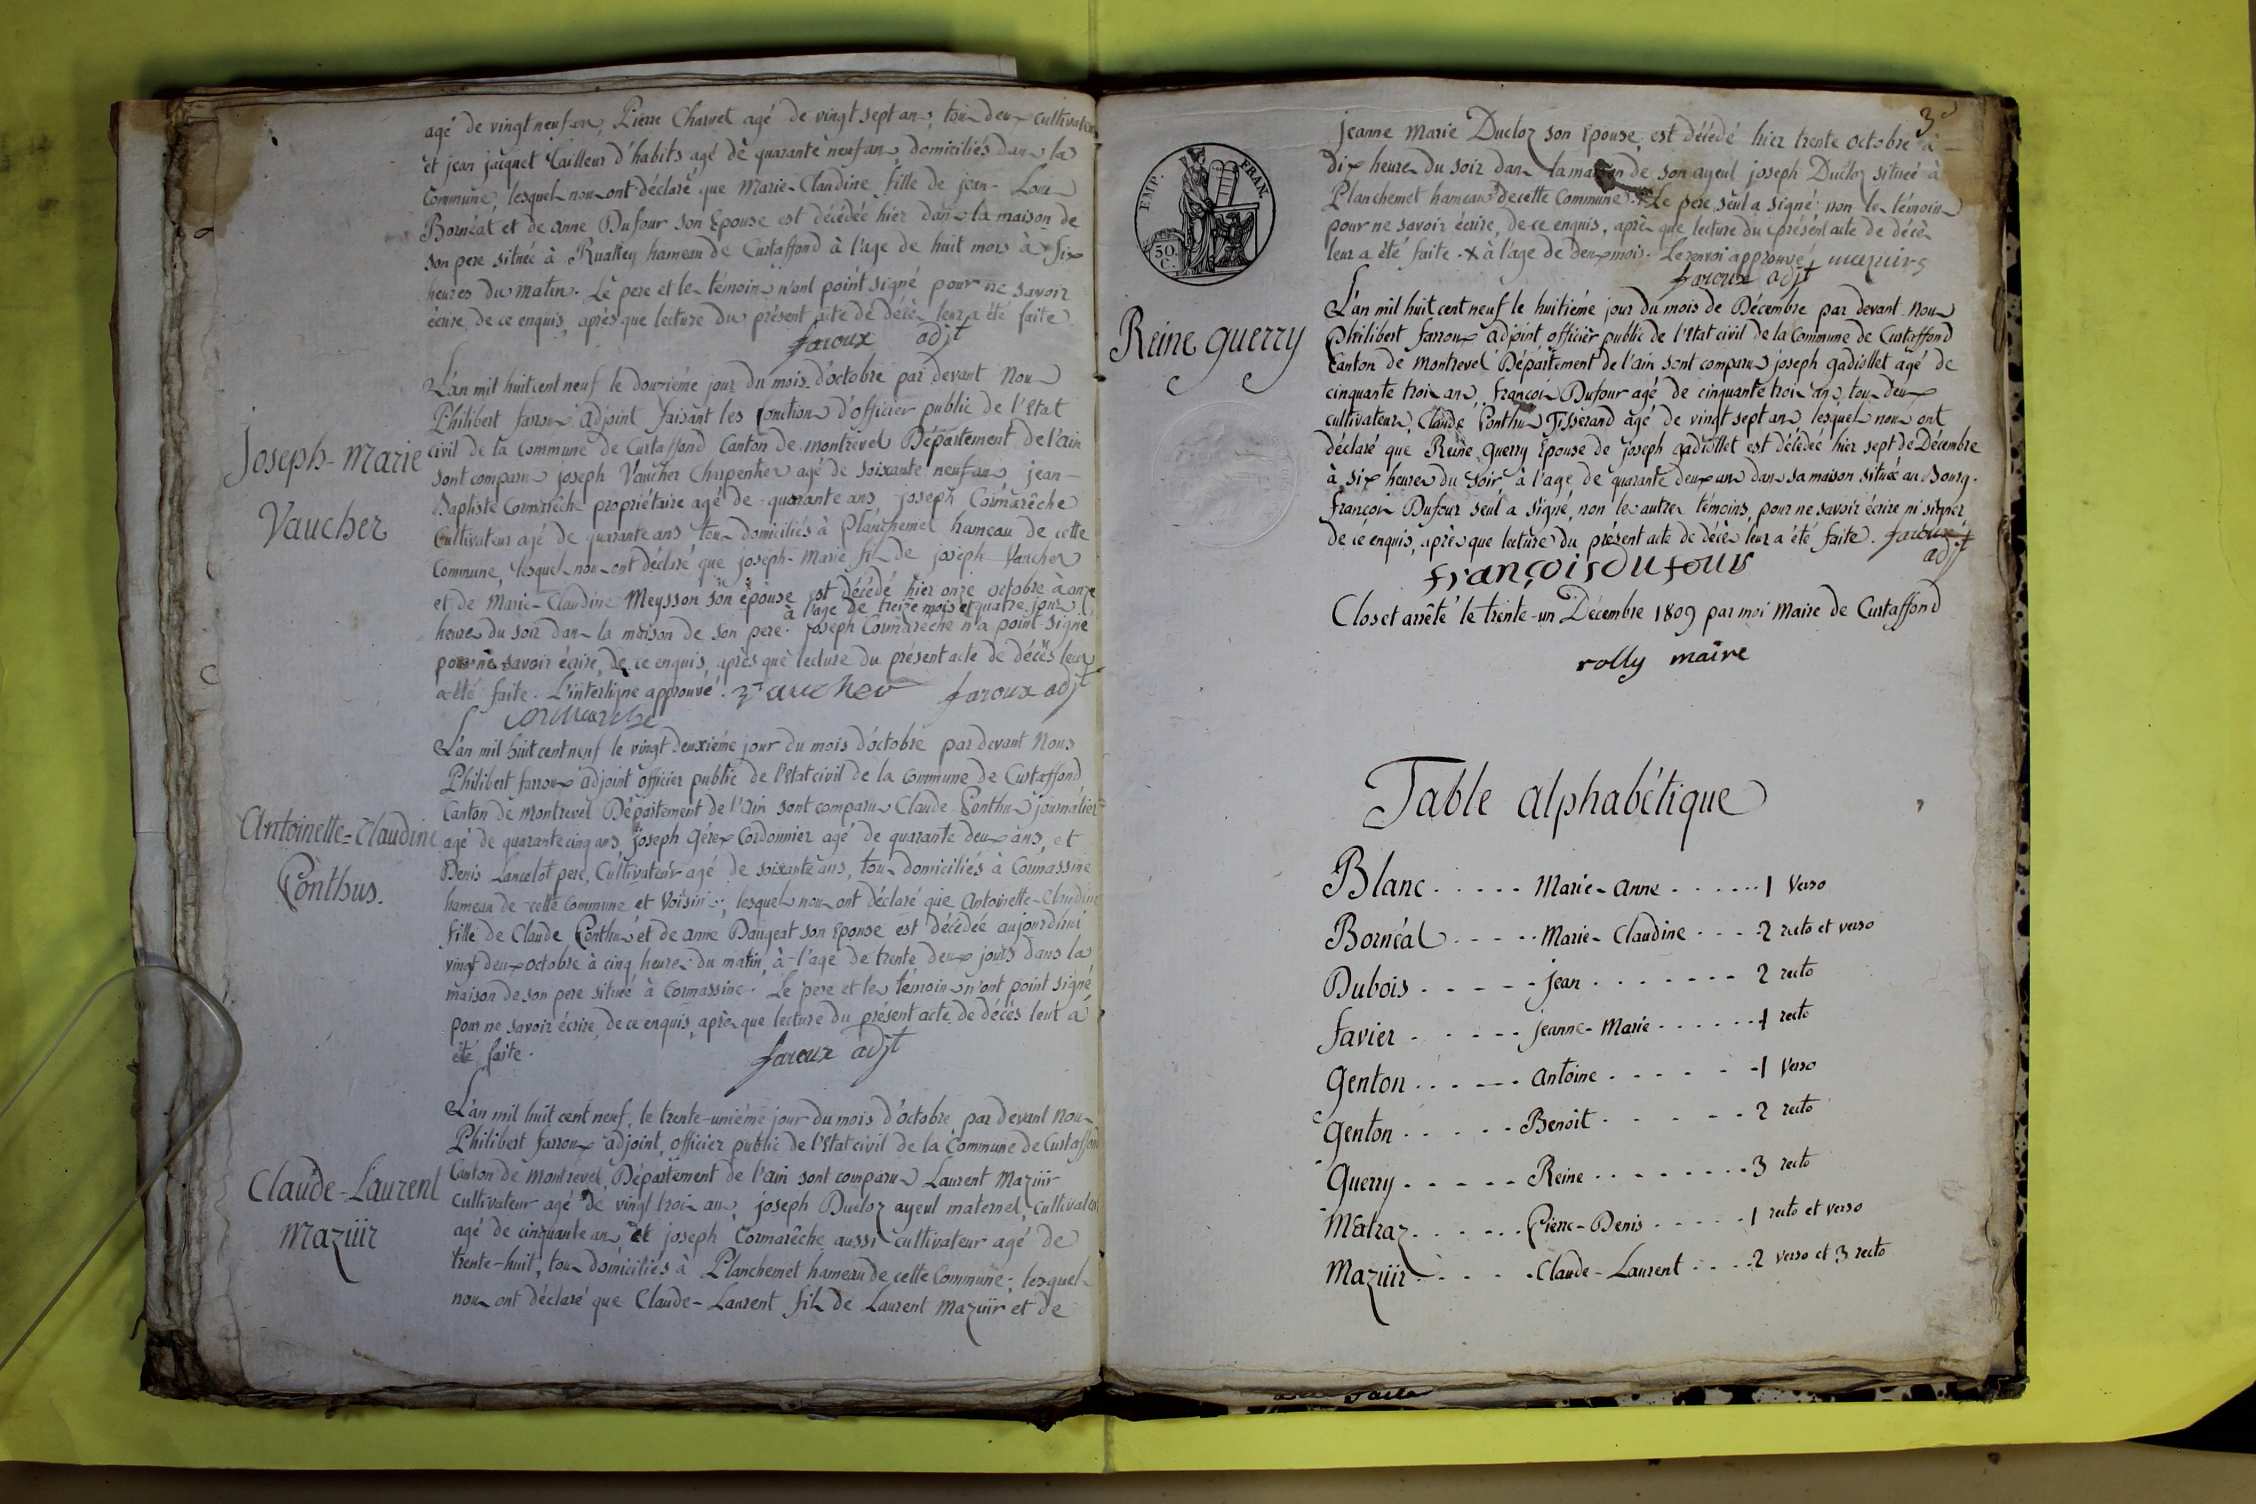 agé de vingt neuf ans, Pierre Charvet agé de vingt sept ans, tous deux cultivateurs
et jean jacquet Tailleur d'habits agé de quarante neuf ans domiciliés dans la
Commune, lesquels nous ont déclaré que Marie-Claudine fille de jean-Louis
Bornéat et de anne Dufour son Epouse est décédée hier dans la maison de
son pere située à Ruattey hameau de Curtaffond à l'age de huit mois à six
heures du matin. Le pere et les témoins n'ont point signé pour ne savoir
écrire, de ce enquis, après que lecture du présent acte de décès leur a été faite.
faroux adjt
Joseph-Marie
Vaucher
L'an mil huit cent neuf le douzième jour du mois d'octobre par devant Nous
Philibert farroux adjoint faisant les fonctions d'officier public de l'Etat
civil de la Commune de Curtaffond Canton de montrevel Département de l'ain
sont comparus joseph Vaucher Charpentier agé de soixante neuf ans, jean-
Baptiste Cormarêche propriétaire agé de quarante ans joseph Cormarêche
Cultivateur agé de quarante ans tous domiciliés à Planchemel hameau de cette
Commune, lesquels nous ont déclaré que joseph-Marie fils de joseph Vaucher
et de Marie-Claudine Meysson son épouse est décédé hier onze octobre à onze
à l'age de treize mois et quatre jours
heures du soir dans la maison de son pere. joseph Cormarêche n'a point signé
pour ne savoir écrire, de ce enquis, après que lecture du présent acte de décès leur
a été faite. L'interligne approuvé. Vaucher faroux adjt
Cormareche
Antoinette-Claudine
Ponthus.
L'an mil huit cent neuf le vingt deuxième jour du mois d'octobre par devant Nous
Philibert farroux adjoint officier public de l'Etat civil de la Commune de Curtaffond
Canton de montrevel Département de l'ain sont comparus Claude Ponthus journalier
agé de quarante cinq ans joseph Gérex Cordonnier agé de quarante deux ans, et
Denis Lancelot pere, Cultivateur agé de soixante ans, tous domiciliés à Cormassine
hameau de cette Commune et Voisins; lesquels nous ont déclaré que Antoinette-Claudine
fille de Claude Ponthus et de anne Daugeat son Epouse est décédée aujourd'hui
vingt deux octobre à cinq heures du matin, à l'age de trente deux jours dans la
maison de son pere située à Cormassine. Le pere et les témoins n'ont point signé
pour ne savoir écrire, de ce enquis, après que lecture du présent acte de décès leur a
été faite. faroux adjt
Claude-Laurent
Mazüir
L'an mil huit cent neuf, le trente-unième jour du mois d'octobre, par devant Nous
Philibert farroux adjoint, officier public de l'Etat civil de la Commune de Curtaffond
Canton de montrevel Département de l'ain sont comparus Laurent Mazüir
cultivateur agé de vingt trois ans, joseph Ducloz ayeul maternel, Cultivateur
agé de cinquante ans et joseph Cormarêche aussi cultivateur agé de
trente-huit, tous domiciliés à Planchemel hameau de cette Commune; lesquels
nous ont déclaré que Claude-Laurent fils de Laurent Mazüir et de
3
EMP. FRAN.
50.
C.
jeanne Marie Ducloz son Epouse, est décédé hier trente octobre à
dix heures du soir dans la maison de son ayeul joseph Ducloz située à
Planchemel hameau de cette Commune. X Le pere seul a signé non les témoins
pour ne savoir écrire, de ce enquis, après que lecture du présent acte de décès
leur a été faite. X à l'age de deux mois. Le renvoi approuvé, mazuirs
faroux adjt
Reine guerry
L'an mil huit cent neuf le huitième jour du mois de Décembre par devant Nous
Philibert farroux adjoint officier public de l'Etat civil de la Commune de Curtaffond
Canton de montrevel Département de l'ain sont comparus joseph gadiollet agé de
cinquante trois ans, françois Dufour agé de cinquante trois ans, tous deux
cultivateurs, Claude Ponthus Tisserand agé de vingt sept ans, lesquels nous ont
déclaré que Reine guerry Epouse de joseph gadiollet est décédée hier sept de Décembre
à six heures du soir à l'age de quarante deux ans dans sa maison située au Bourg.
françois Dufour seul a signé, non les autres témoins, pour ne savoir écrire ni signer
de ce enquis, après que lecture du présent acte de décès leur a été faite. faroux
adjt
françois dufour
Clos et arrêté le trente-un Décembre 1809 par moi Maire de Curtaffond
rolly maire
Table alphabétique
Blanc . . . . . Marie-Anne . . . . . . 1 Verso
Bornéat . . . . . Marie-Claudine . . . . 2 recto et verso
Dubois . . . . . jean . . . . . . . 2 recto
favier . . . . . jeanne-Marie . . . . . . 1 recto
Genton . . . . . antoine . . . . . . 1 Verso
Genton . . . . . Benoit . . . . . . 2 recto
Guerry . . . . . Reine . . . . . . . . 3 recto
Matraz . . . . . Pierre-Denis . . . . . 1 recto et verso
Mazüir . . . . . Claude-Laurent . . . . 2 verso et 3 recto